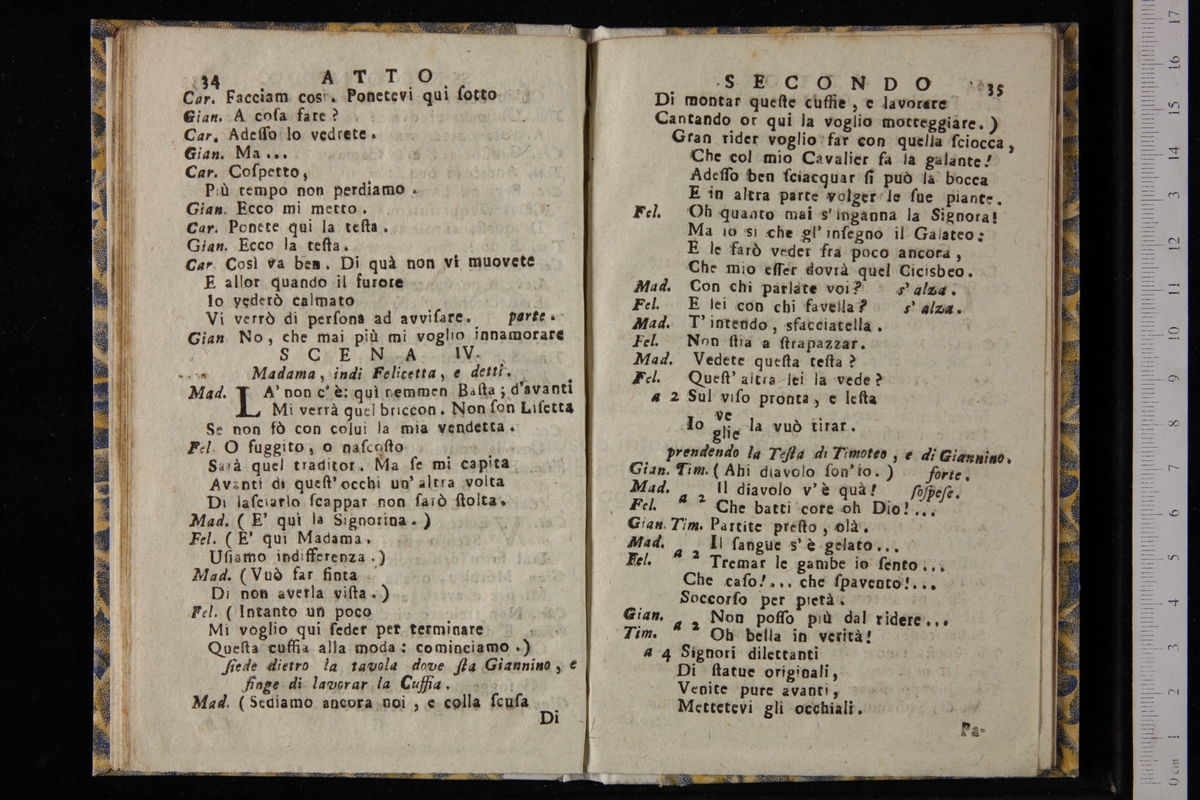 34 ATTO
Car. Facciam così. Ponetevi qui ſotto
Gian. A coſa fare?
Car. Adeſſo lo vedrete.
Gian. Ma...
Car. Coſpetto,
Più tempo non perdiamo.
Gian. Ecco mi metto.
Car. Ponete qui la teſta.
Gian. Ecco la teſta.
Car. Così va ben. Di quà non vi muovete
E allor quando il furore
Io vederò calmato
Vi verrò di perſona ad avviſare. parte.
Gian. No, che mai più mi voglio innamorare
SCENA IV.
Madama, indi Felicetta, e detti.
Mad. LA' non c'è: quì nemmen Baſta; d'avanti
Mi verrà quel briccon. Non ſon Liſetta
Se non fò con colui la mia vendetta.
Fel. O fuggito, o naſcoſto
Sarà quel traditor. Ma ſe mi capita
Avanti di queſt'occhi un'altra volta
Di laſciarlo ſcappar non ſarò ſtolta.
Mad. (E' quì la Signorina.)
Fel. (E' quì Madama.
Uſiamo indifferenza.)
Mad. (Vuò far finta
Di non averla viſta.)
Fel. (Intanto un poco
Mi voglio qui ſeder per terminare
Queſta cuffia alla moda: cominciamo.)
ſiede dietro la tavola dove ſta Giannino, e
finge di lavorar la Cuffia.
Mad. (Sediamo ancora noi, e colla ſcuſa
Di
SECONDO 35
Di montar queſte cuffie, e lavorare
Cantando or qui la voglio motteggiare.)
Gran rider voglio far con quella ſciocca,
Che col mio Cavalier fa la galante!
Adeſſo ben ſciacquar ſi può la bocca
E in altra parte volger le ſue piante.
Fel. Oh quanto mai s'inganna la Signora!
Ma io sì che gl'inſegno il Galateo:
E le farò veder fra poco ancora,
Che mio eſſer dovrà quel Cicisbeo.
Mad. Con chi parlate voi? s'alza.
Fel. E lei con chi favella? s'alza.
Mad. T'intendo, sfacciatella.
Fel. Non ſtia a ſtrapazzar.
Mad. Vedete queſta teſta?
Fel. Queſt'altra lei la vede?
a 2 Sul viſo pronta, e leſta
Io ve la vuò tirar.
glie
prendendo la Teſta di Timoteo, e di Giannino.
Gian. Tim. (Ahi diavolo ſon'io.) forte.
Mad. a 2 Il diavolo v'è quà! ſoſpeſe.
Fel. Che batti core oh Dio!...
Gian. Tim. Partite preſto, olà.
Mad. a 2 Il ſangue s'è gelato...
Fel. Tremar le gambe io ſento...
Che caſo!... che ſpavento!...
Soccorſo per pietà.
Gian. a 2 Non poſſo più dal ridere...
Tim. Oh bella in verità!
a 4 Signori dilettanti
Di ſtatue originali,
Venite pure avanti,
Mettetevi gli occhiali.
Pa-
0 cm 1 2 3 4 5 6 7 8 9 10 11 12 13 14 15 16 17